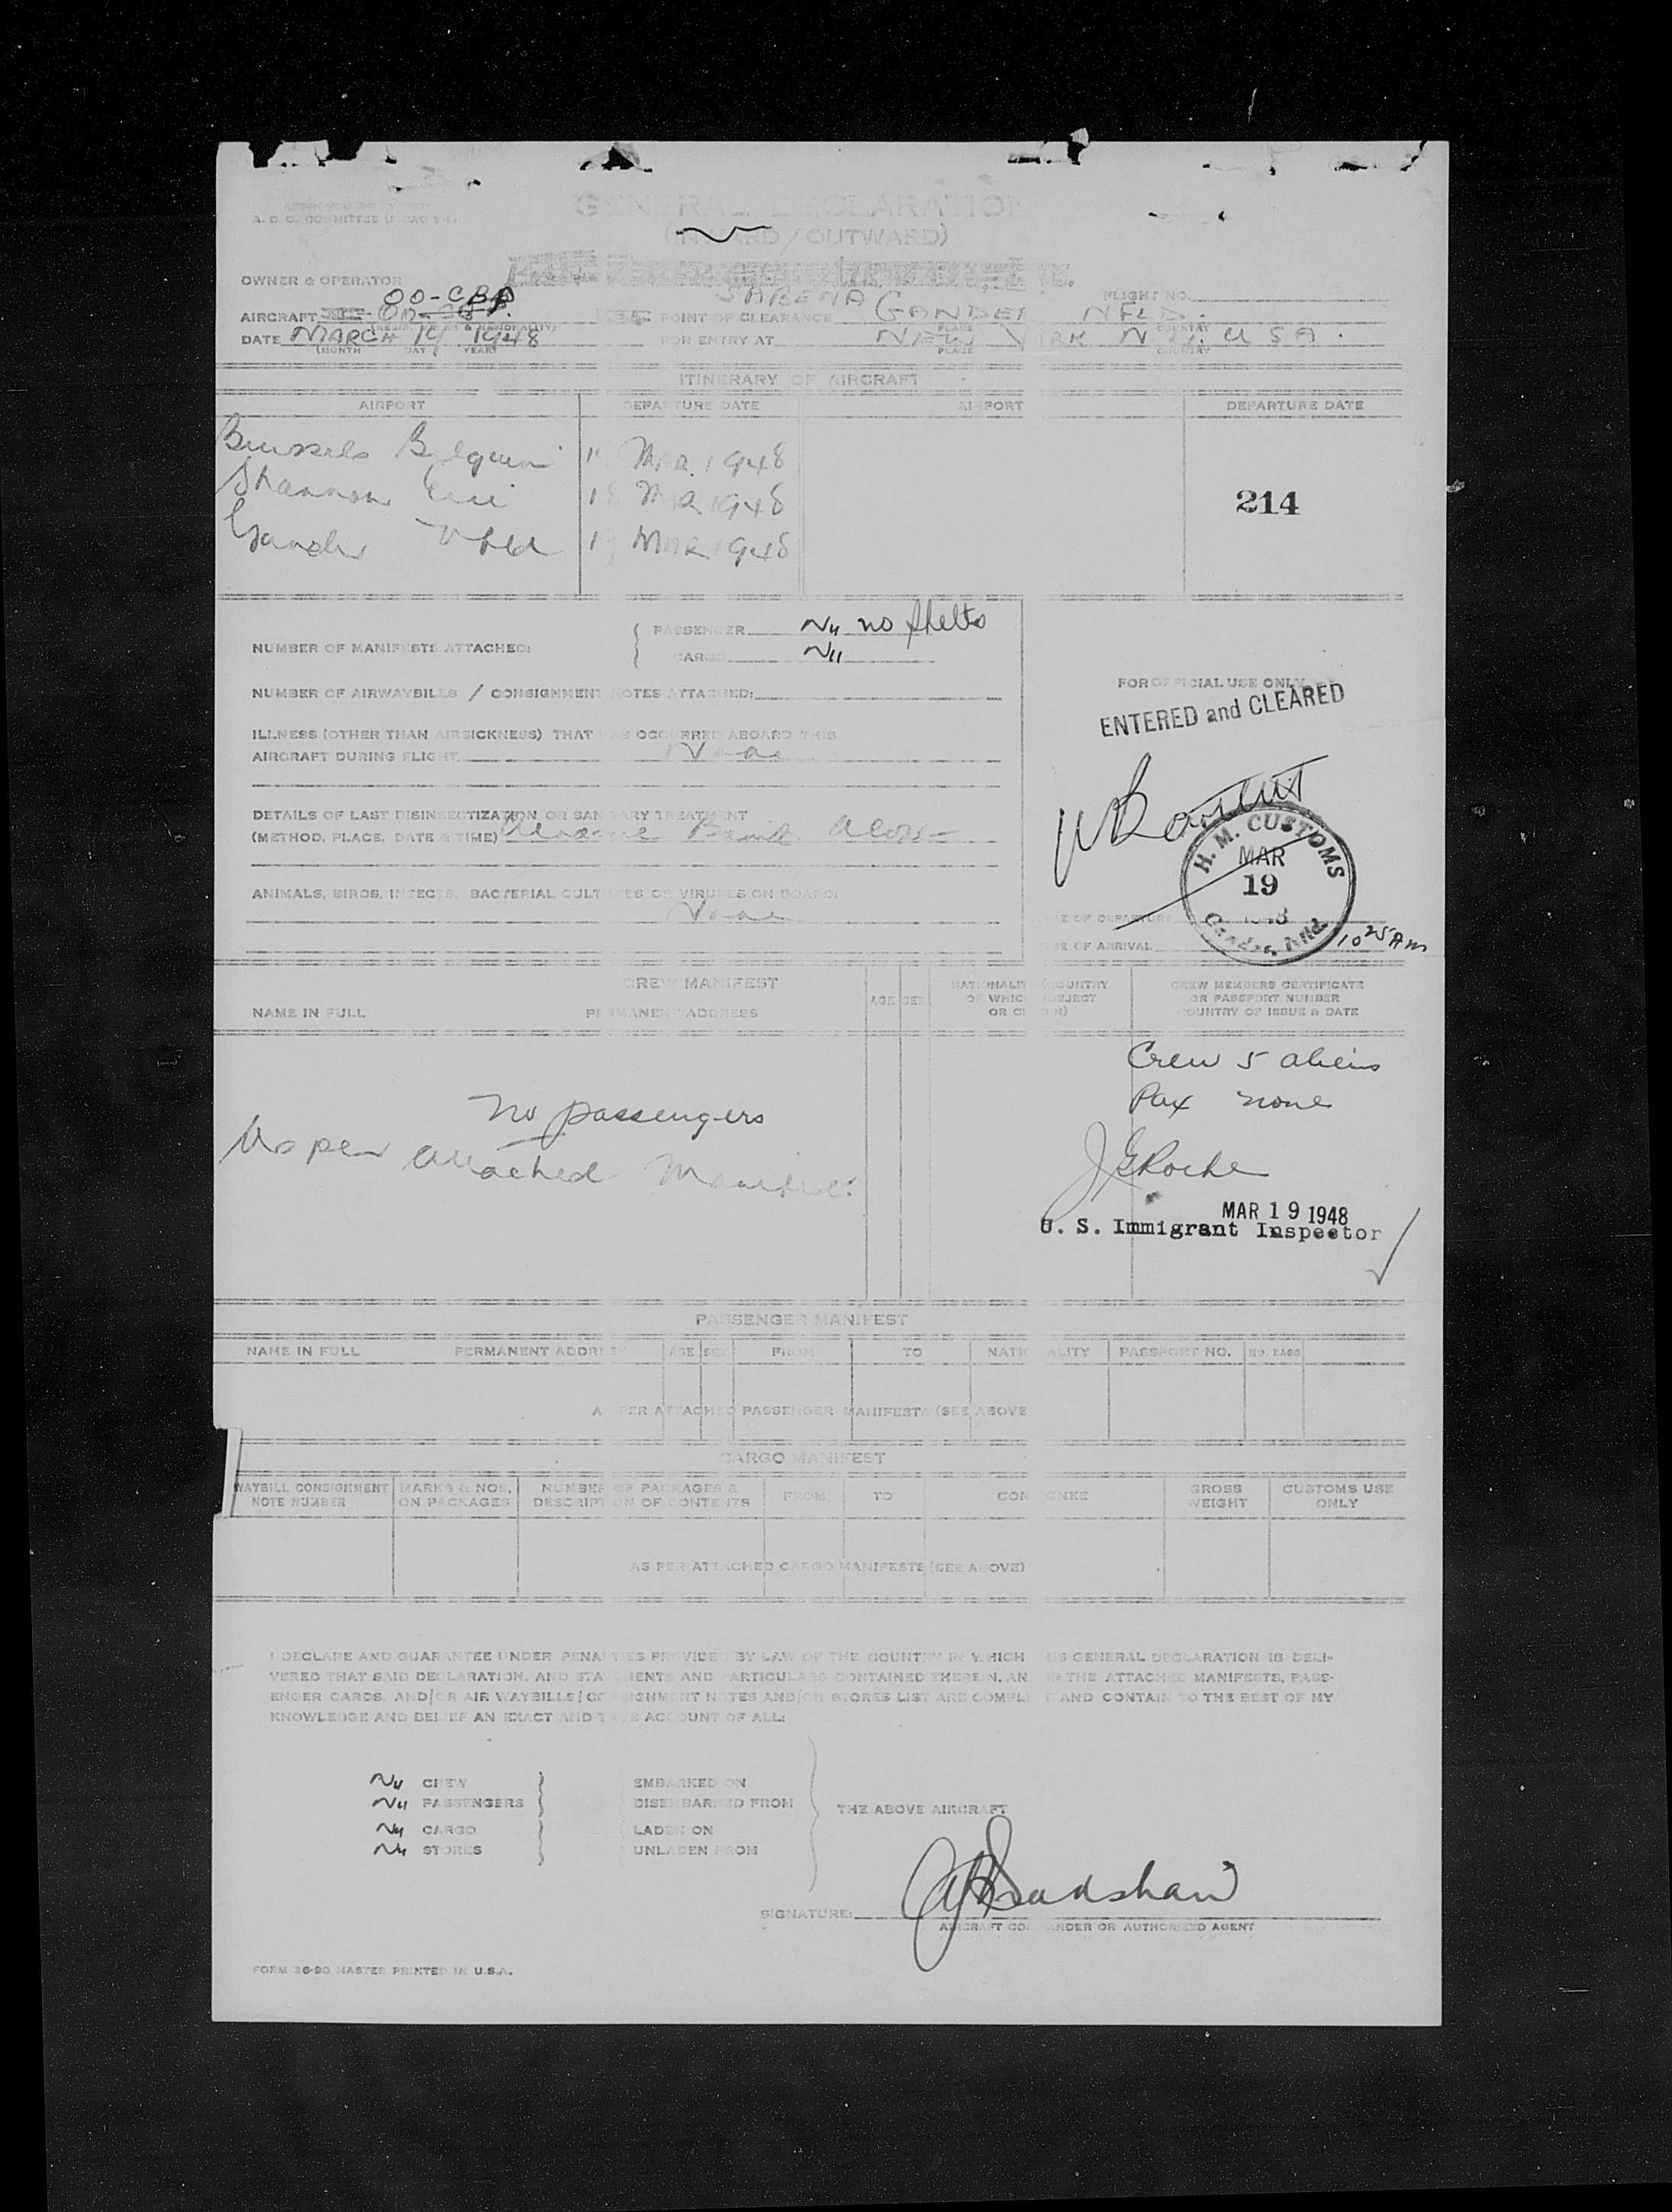 A. D. C. COMMITTEE
GENERAL DECLARATION
(INWARD / OUTWARD)
OWNER & OPERATOR
SABENA
FLIGHT NO.
OO-CBP
AIRCRAFT
POINT OF CLEARANCE GANDER NFLD.
(REGIST. MARKS & NATIONALITY) PLACE COUNTRY
DATE MARCH 19 1948 FOR ENTRY AT NEW YORK N.Y. USA.
(MONTH DAY YEAR) PLACE COUNTRY
ITINERARY OF AIRCRAFT
AIRPORT DEPARTURE DATE AIRPORT DEPARTURE DATE
Brussels Belgium Mar. 1948
Shannon Eire 18 Mar 1948
214
Gander Nfld Mar 1948
PASSENGER Nil no
NUMBER OF MANIFESTS ATTACHED:
CARGO Nil
NUMBER OF AIRWAYBILLS / CONSIGNMENT NOTES ATTACHED:
FOR OFFICIAL USE ONLY
ENTERED and CLEARED
ILLNESS (OTHER THAN AIRSICKNESS) THAT HAS OCCURRED ABOARD THIS
AIRCRAFT DURING FLIGHT None
DETAILS OF LAST DISINSECTIZATION OR SANITARY TREATMENT
(METHOD, PLACE, DATE & TIME)
H. M. CUSTOMS
MAR
19
1948
Gander, Nfld.
ANIMALS, BIRDS, INSECTS, BACTERIAL CULTURES OR VIRUSES ON BOARD:
None
TIME OF DEPARTURE
TIME OF ARRIVAL 10 25 AM
CREW MANIFEST
NAME IN FULL PERMANENT ADDRESS AGE SEX
NATIONALITY (COUNTRY
OF WHICH SUBJECT
OR CITIZEN)
CREW MEMBERS CERTIFICATE
OR PASSPORT NUMBER
COUNTRY OF ISSUE & DATE
Crew 5 aliens
Pax none
No passengers
As per attached Manifest
J G Roche
MAR 19 1948
U. S. Immigrant Inspector
PASSENGER MANIFEST
NAME IN FULL PERMANENT ADDRESS AGE SEX FROM TO NATIONALITY PASSPORT NO. NO. BAGS
AS PER ATTACHED PASSENGER MANIFESTS (SEE ABOVE
CARGO MANIFEST
WAYBILL CONSIGNMENT NOTE NUMBER MARKS & NOS. ON PACKAGES NUMBER OF PACKAGES & DESCRIPTION OF CONTENTS FROM TO CONSIGNEE GROSS WEIGHT CUSTOMS USE ONLY
AS PER ATTACHED CARGO MANIFESTS (SEE ABOVE)
I DECLARE AND GUARANTEE UNDER PENALTIES PROVIDED BY LAW OF THE COUNTRY IN WHICH THIS GENERAL DECLARATION IS DELI-
VERED THAT SAID DECLARATION, AND STATEMENTS AND PARTICULARS CONTAINED THEREIN, AND IN THE ATTACHED MANIFESTS, PASS-
ENGER CARDS, AND/OR AIR WAYBILLS/CONSIGNMENT NOTES AND/OR STORES LIST ARE COMPLETE AND CONTAIN TO THE BEST OF MY
KNOWLEDGE AND BELIEF AN EXACT AND TRUE ACCOUNT OF ALL:
Nil CREW EMBARKED ON
Nil PASSENGERS DISEMBARKED FROM
THE ABOVE AIRCRAFT
Nil CARGO LADEN ON
Nil STORES UNLADEN FROM
SIGNATURE: Bradshaw
AIRCRAFT COMMANDER OR AUTHORIZED AGENT
FORM 36-90 MASTER PRINTED IN U.S.A.